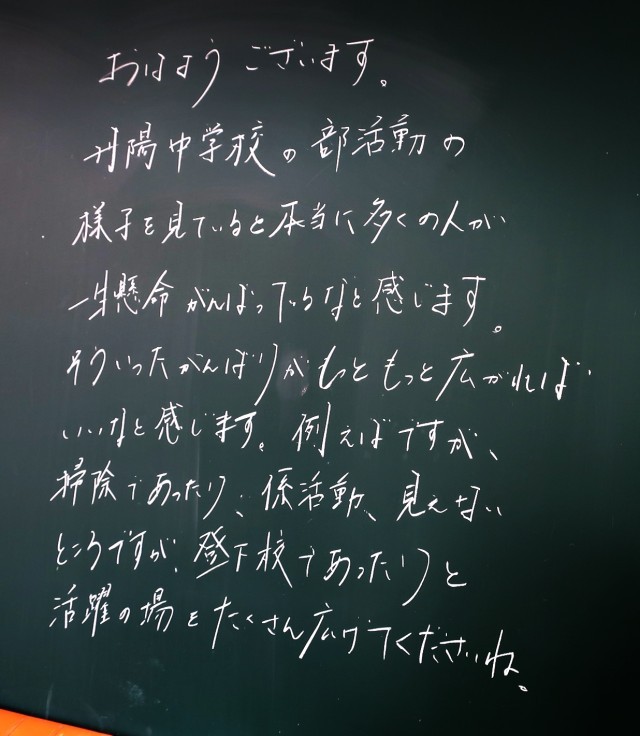 おはようございます。
丹陽中学校の部活動の
様子を見ていると本当に多くの人が
一生懸命がんばっているなと感じます。
そういったがんばりがもっともっと広がれば
いいなと感じます。例えばですが、
掃除であったり、係活動、見えない
ところですが、登下校であったりと
活躍の場をたくさん広げてくださいね。